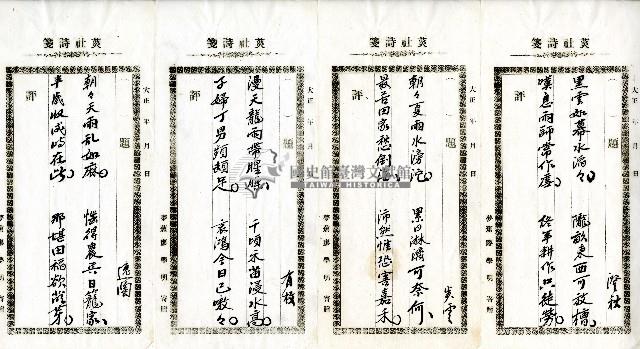 英社詩箋
大正 年 月 日
題
評
黑雲如幕水滔々
隴畝東西可放槽
嘆息雨師常作虐
終年耕作只徒勞
澄秋
夢蓮 廖學明 寄贈
英社詩箋
大正 年 月 日
題
評
朝々夏雨水滂沱
累日淋漓可奈何
最苦田家愁倒
沛然惟恐害嘉禾
炎雲
英社詩箋
大正 年 月 日
題
評
漫天龍雨帶腥
千頃禾苗浸水高
子婦丁男頻頓足
哀鴻今日已嗷々
有積
英社詩箋
大正 年 月 日
題
評
朝々天雨乱如麻
惱得農兵日籠家
半歲收成時在此
那堪田稻欲發芽
國史館臺灣文獻館
TAIWAN HISTORICA